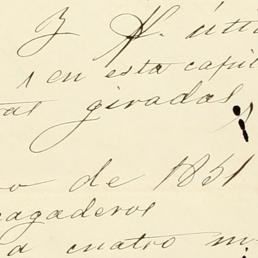 Y H. úti
, en esta capit
tas giradas
o de 1851
pagaderos
a cuatro m